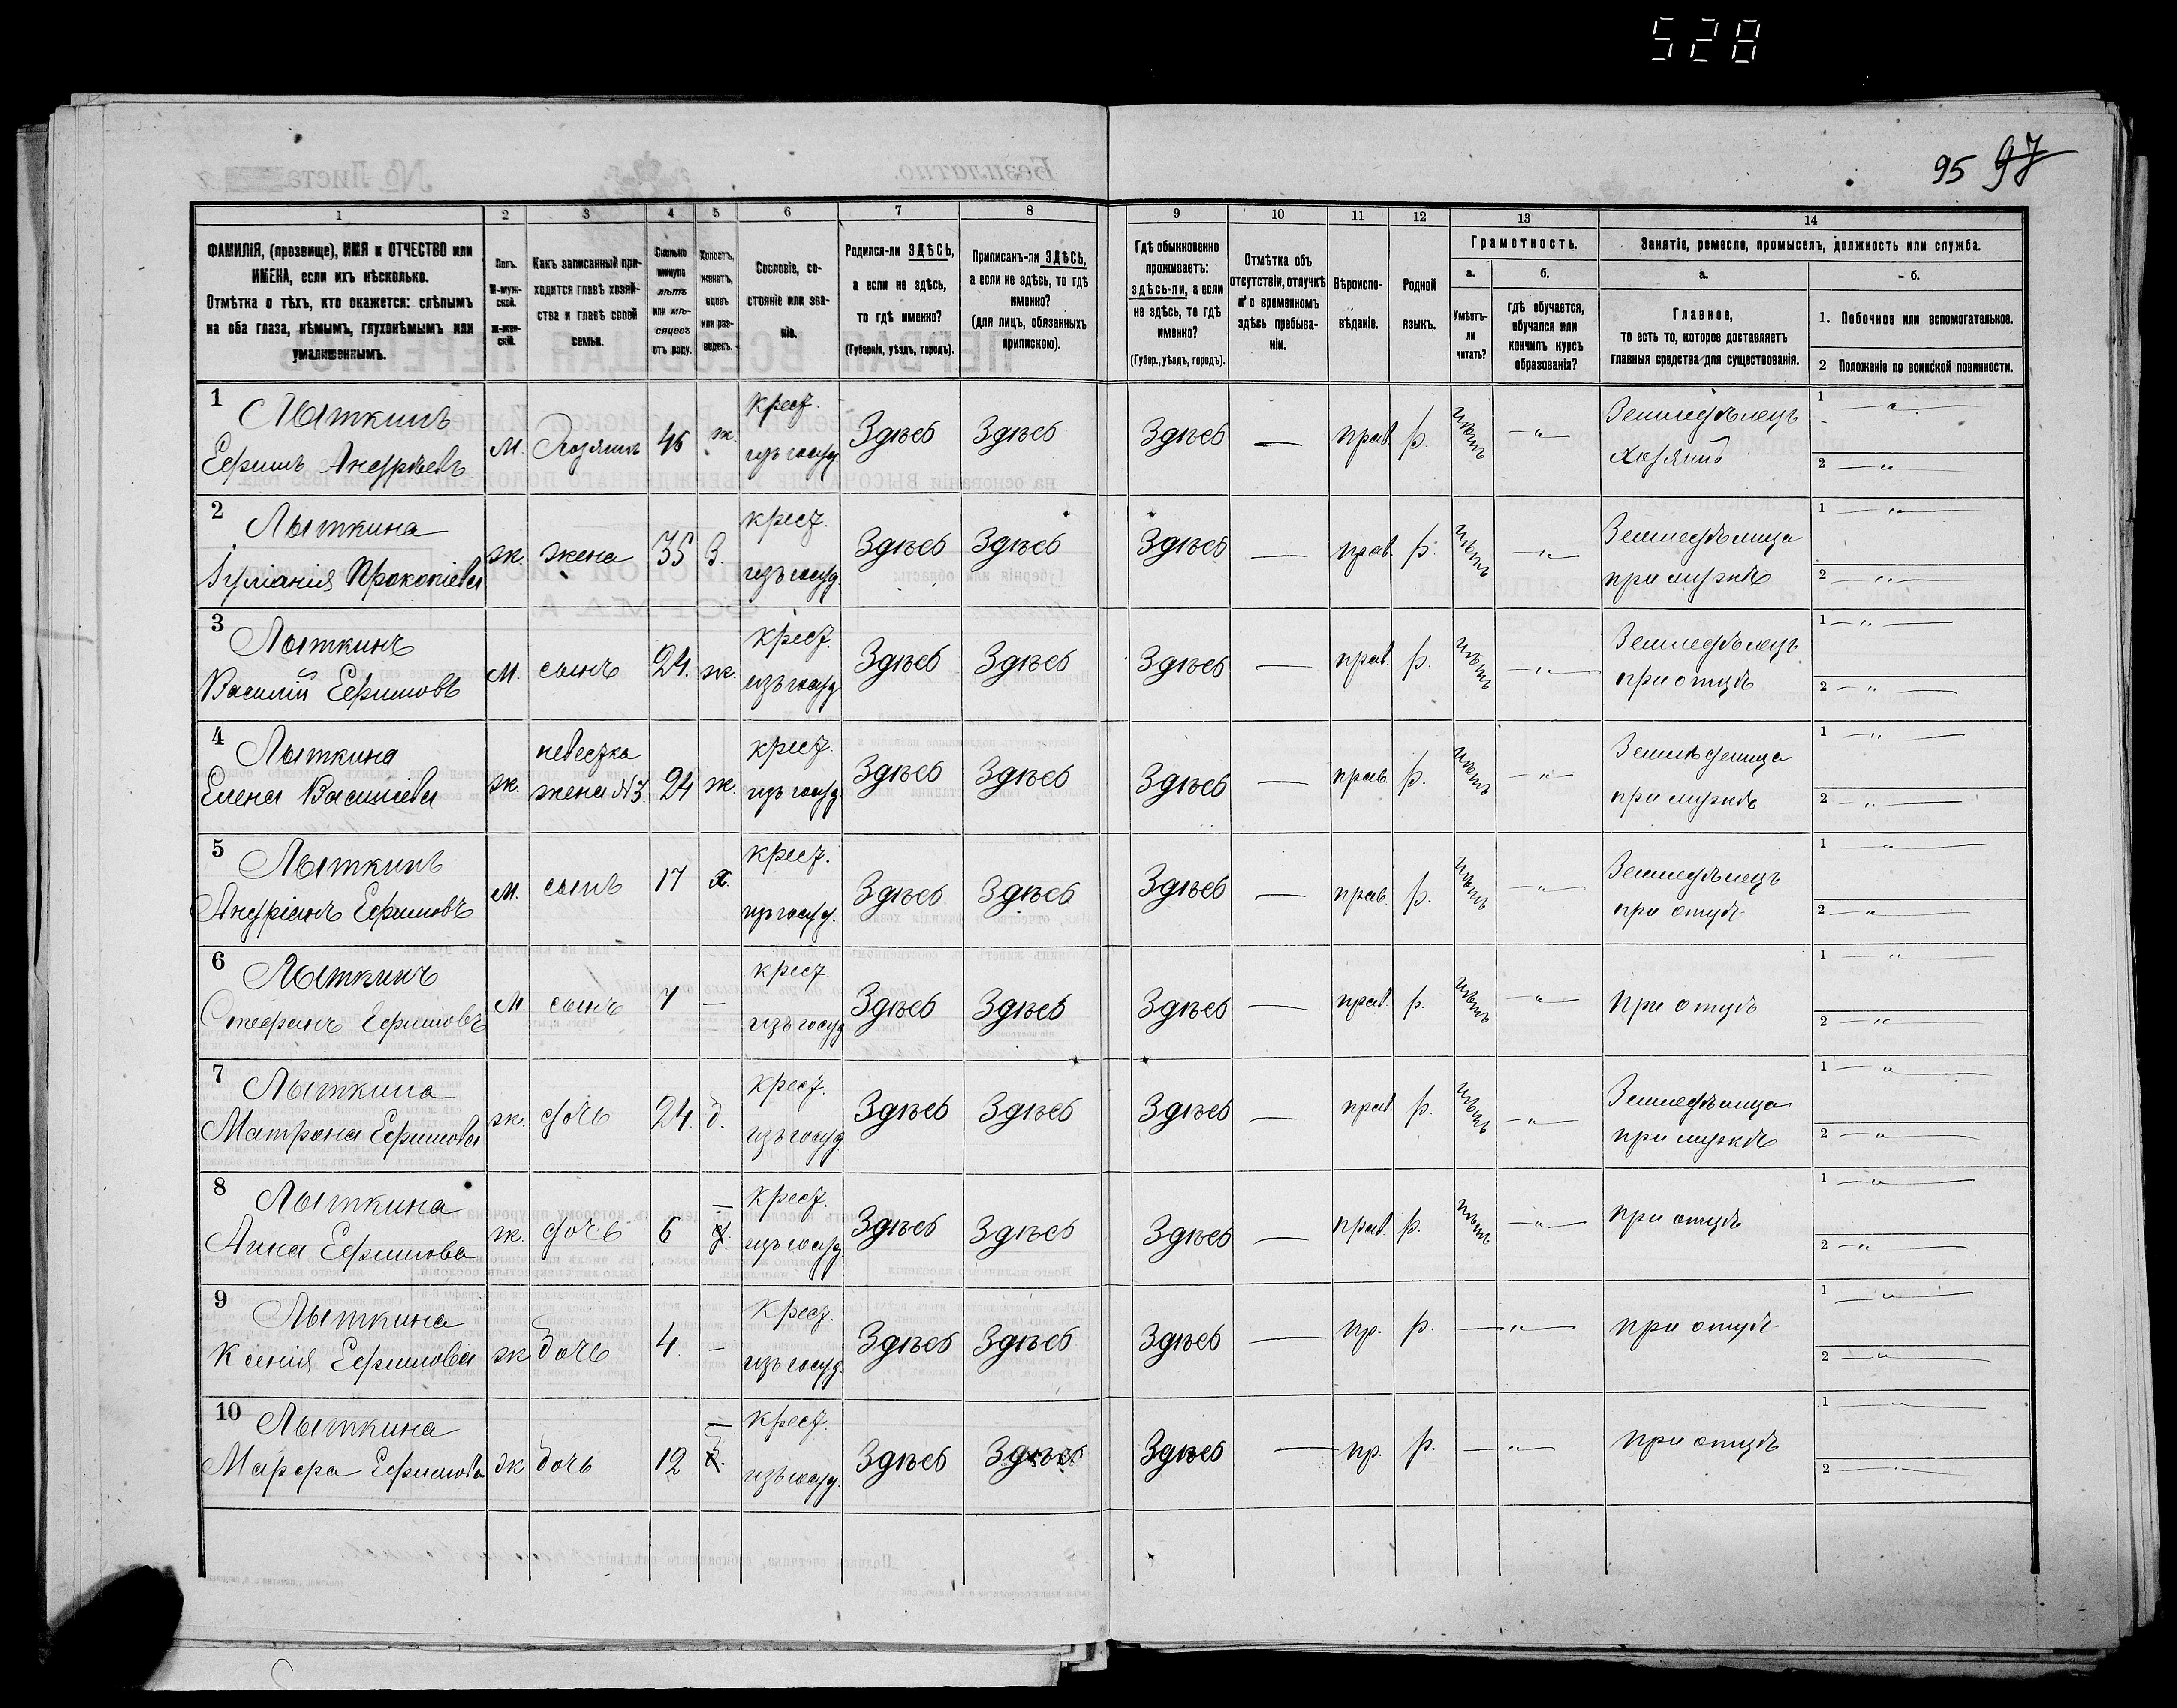 528
95 97
Безплатно.
№ Листа
1 2 3 4 5 6 7 8 9 10 11 12 13 14
ФАМИЛІЯ, (прозвище), ИМЯ и ОТЧЕСТВО или
ИМЕНА, если ихъ нѣсколько.
Отмѣтка о тѣхъ, кто окажется: слѣпымъ
на оба глаза, нѣмымъ, глухонѣмымъ или
умалишеннымъ.
Полъ.
М-муж-
ской.
Ж-жен-
скій.
Какъ записанный при-
ходится главѣ хозяй-
ства и главѣ своей
семьи.
Сколько
минуло
лѣтъ
или мѣ-
сяцевъ
отъ роду.
Холостъ,
женатъ,
вдовъ
или раз-
веденъ.
Сословіе, со-
стояніе или зва-
ніе.
Родился-ли ЗДѢСЬ,
а если не здѣсь,
то гдѣ именно?
(Губернія, уѣздъ, городъ).
Приписанъ-ли ЗДѢСЬ,
а если не здѣсь, то гдѣ
именно?
(для лицъ, обязанныхъ
припискою).
Гдѣ обыкновенно
проживаетъ:
здѣсь-ли, а если
не здѣсь, то гдѣ
именно?
(Губер., уѣздъ, городъ).
Отмѣтка объ
отсутствіи, отлучкѣ
и о временномъ
здѣсь пребыва-
ніи.
Вѣроиспо-
вѣданіе.
Родной
языкъ.
Грамотность.
а.
Умѣетъ-
ли
читать?
б.
гдѣ обучается,
обучался или
кончилъ курсъ
образованія?
Занятіе, ремесло, промыселъ, должность или служба.
а.
Главное,
то есть то, которое доставляетъ
главныя средства для существованія.
б.
1. Побочное или вспомогательное.
2 Положеніе по воинской повинности.
1 Лыткинъ крест. Земледѣлецъ 1 — " —
Ефимъ Андрѣевъ м. Хозяинъ 46 ж. изъ госуд Здѣсь Здѣсь Здѣсь — прав. р. нѣтъ — " — хозяинъ 2 — " —
2 Лыткина крест. Земледѣлица 1 — " —
Іуліанія Прокопіева ж. жена 35 З. изъ госуд Здѣсь Здѣсь Здѣсь — прав р. нѣтъ — " — при мужѣ 2 — " —
3 Лыткинъ крест. Земледѣлецъ 1 — " —
Василій Ефимовъ м. сынъ 24. ж. изъ госуд Здѣсь Здѣсь Здѣсь — прав. р. нѣтъ — " — при отцѣ 2 — " —
4 Лыткина невестка крест. 1 — " —
Елена Василіева ж. жена №3. 24 ж. изъ госуд Здѣсь Здѣсь Здѣсь — прав. р. нѣтъ — " — при мужѣ 2 — " —
5 Лыткинъ крест. Земледѣлецъ 1 — " —
Андріанъ Ефимовъ м. сынъ 17 х. изъ госуд. Здѣсь Здѣсь Здѣсь — прав. р. нѣтъ — " — при отцѣ 2 — " —
6 Лыткинъ крест. 1 — " —
Стефанъ Ефимовъ м. сынъ 7 — изъ госуд Здѣсь Здѣсь Здѣсь — прав. р. нѣтъ — " — при отцѣ 2 — " —
7 Лыткина крест. Земледѣлица 1 — " —
Матрона Ефимова ж. дочь 24. изъ госуд Здѣсь Здѣсь Здѣсь — прав р. нѣтъ — " — при мужѣ 2 — " —
8 Лыткина — крест. 1 — " —
Анна Ефимова ж. дочь 6 изъ госуд Здѣсь Здѣсь Здѣсь — прав. р. нѣтъ — " — при отцѣ 2 — " —
9 Лыткина крест. 1 — " —
Ксенія Ефимова ж дочь 4. — изъ госуд. Здѣсь Здѣсь Здѣсь — пр. р. — " — при отцѣ 2 — " —
10 Лыткина — крест. 1 — " —
Марфа Ефимова ж дочь 12 изъ госуд. Здѣсь Здѣсь Здѣсь — пр. р. — " — при отцѣ 2 — " —